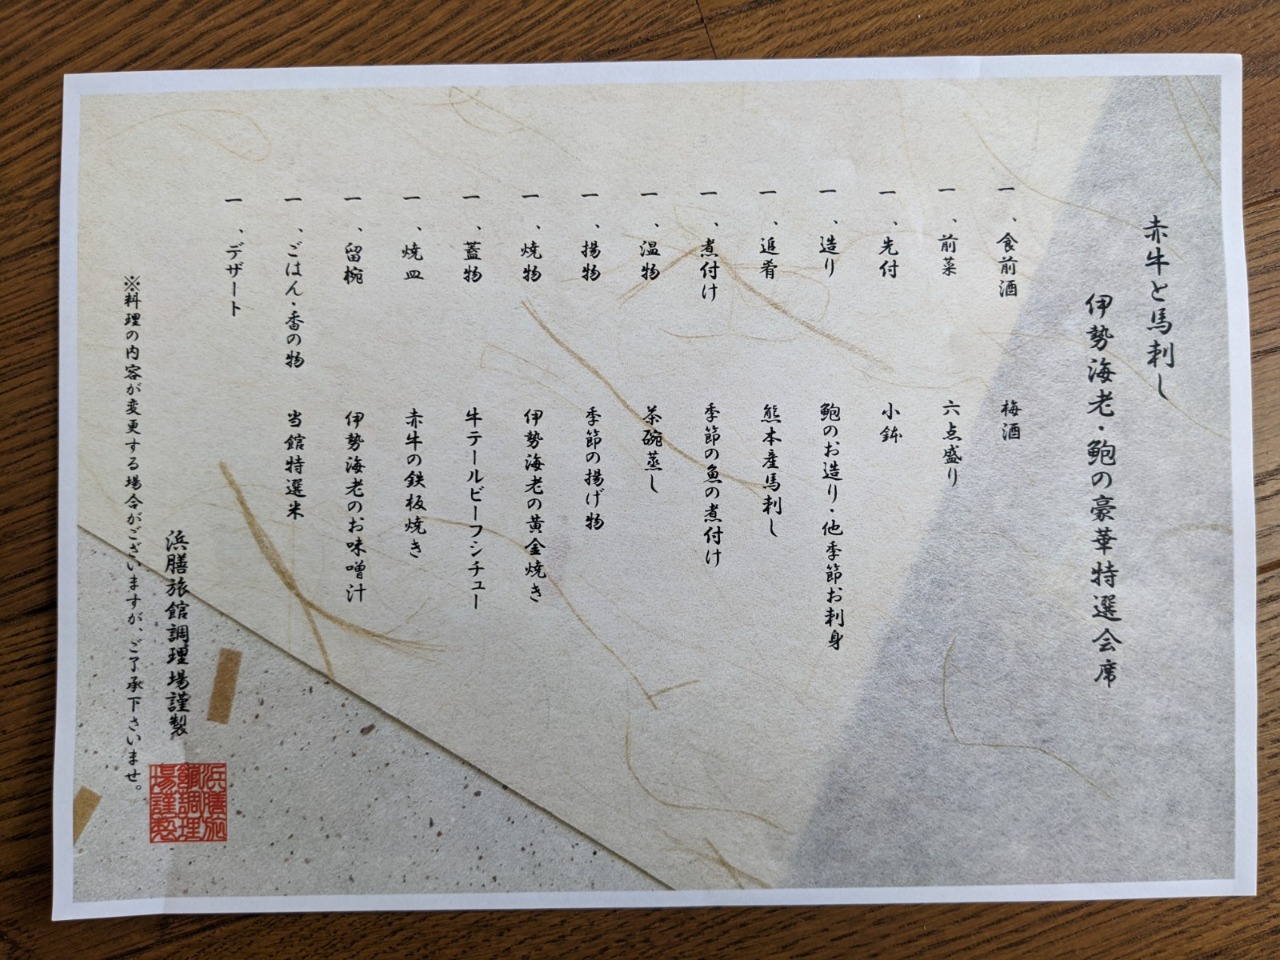 赤牛と馬刺し
伊勢海老・鮑の豪華特選会席
一、食前酒 梅酒
一、前菜 六点盛り
一、先付 小鉢
一、造り 鮑のお造り・他季節お刺身
一、追肴 熊本産馬刺し
一、煮付け 季節の魚の煮付け
一、温物 茶碗蒸し
一、揚物 季節の揚げ物
一、焼物 伊勢海老の黄金焼き
一、蓋物 牛テールビーフシチュー
一、焼皿 赤牛の鉄板焼き
一、留椀 伊勢海老のお味噌汁
一、ごはん・香の物 当館特選米
一、デザート
浜膳旅館調理場謹製
※料理の内容が変更する場合がございますが、ご了承下さいませ。
浜膳旅
館調理
場謹製